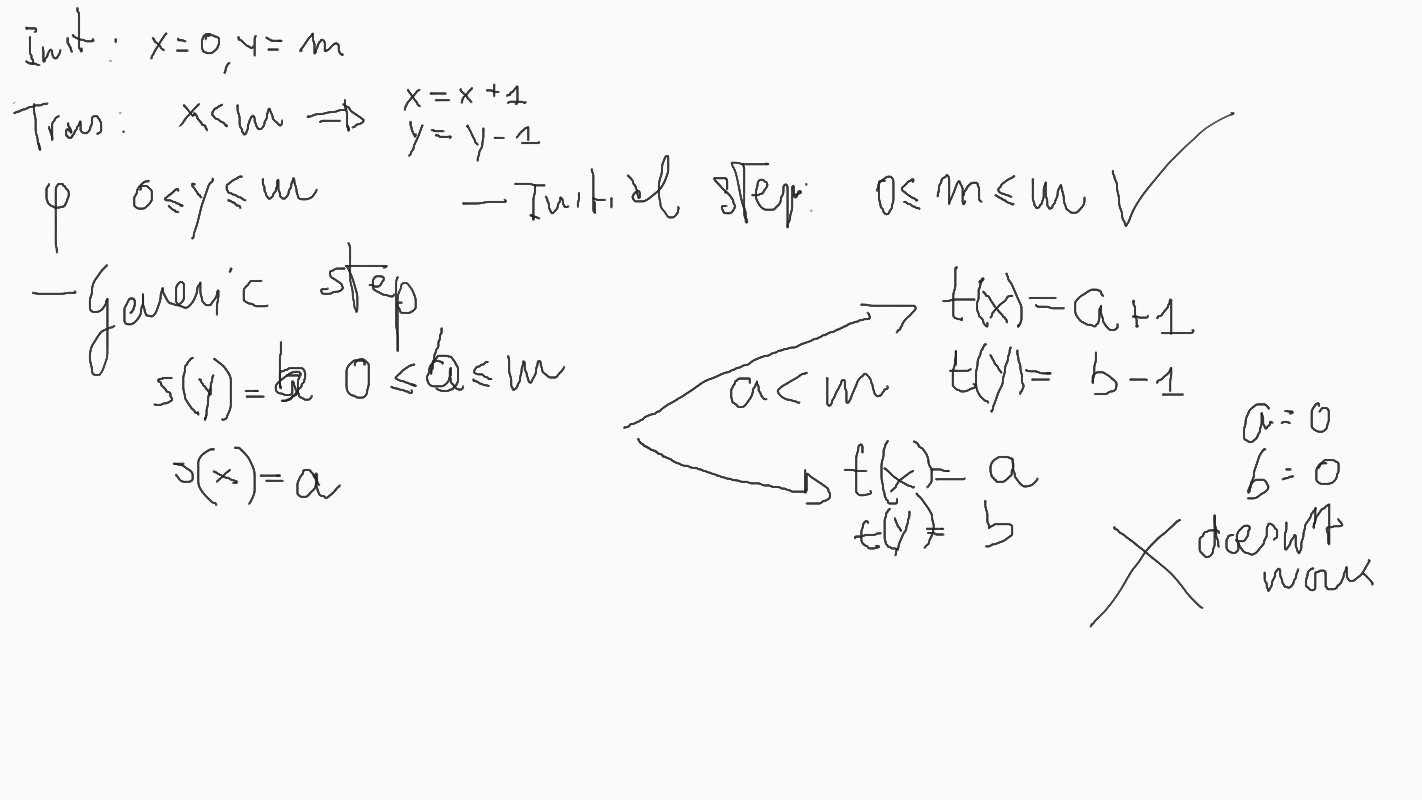 Init: x=0, y=m
Trans: x<m ⇒ x=x+1
y=y-1
φ 0≤y≤m - Initial step: 0≤m≤m ✓
- Generic step
s(y)=b 0≤b≤m
s(x)=a
a<m
t(x)=a+1
t(y)=b-1
t(x)=a
t(y)=b
a=0
b=0
doesn't
work